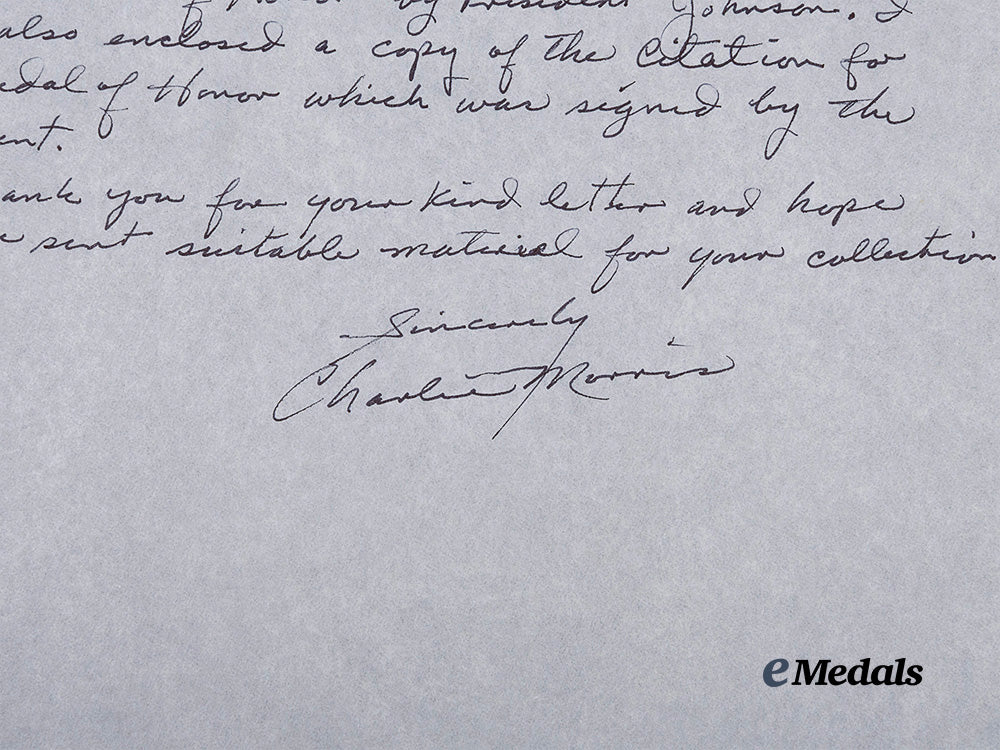 of Honor by President Johnson. I
also enclosed a copy of the Citation for
edal of Honor which was signed by the
ent.
ank you for your kind letter and hope
e sent suitable material for your collection
Sincerely
Charlie Morris
eMedals